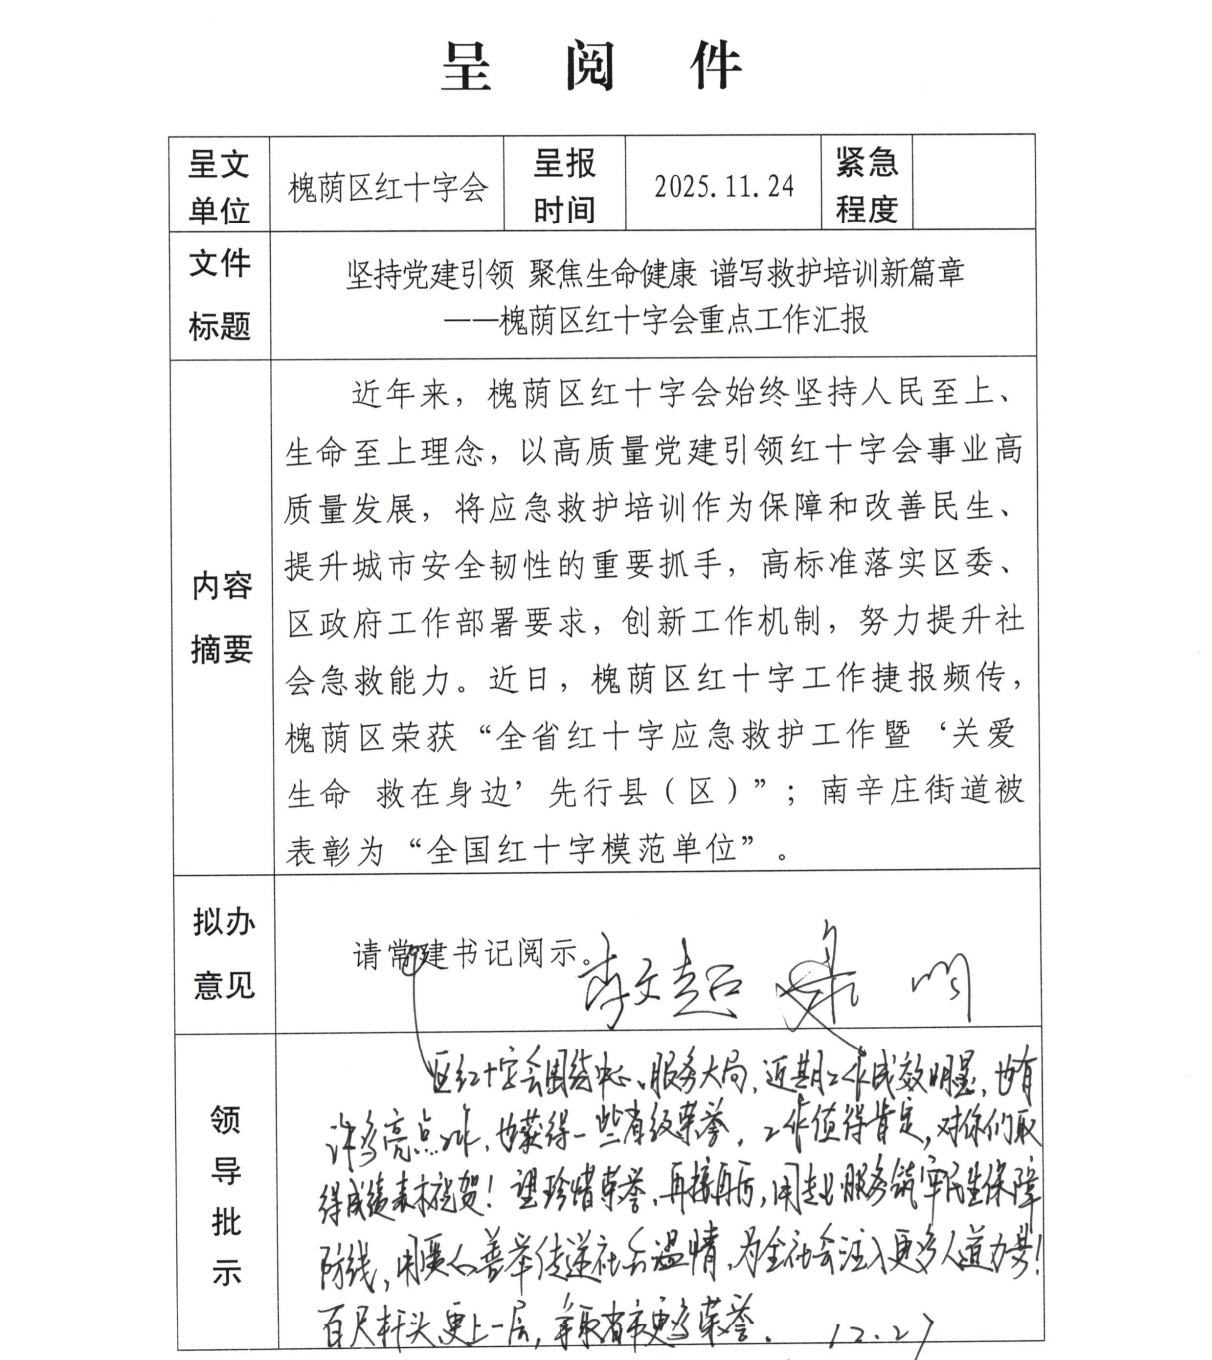 呈阅件
呈文单位
槐荫区红十字会
呈报时间
2025.11.24
紧急程度
文件标题
坚持党建引领 聚焦生命健康 谱写救护培训新篇章
——槐荫区红十字会重点工作汇报
内容摘要
近年来，槐荫区红十字会始终坚持人民至上、
生命至上理念，以高质量党建引领红十字会事业高
质量发展，将应急救护培训作为保障和改善民生、
提升城市安全韧性的重要抓手，高标准落实区委、
区政府工作部署要求，创新工作机制，努力提升社
会急救能力。近日，槐荫区红十字工作捷报频传，
槐荫区荣获“全省红十字应急救护工作暨‘关爱
生命 救在身边’先行县（区）”；南辛庄街道被
表彰为“全国红十字模范单位”。
拟办意见
请常建书记阅示。
李文超
领导批示
区红十字会围绕中心、服务大局，近期工作成效明显，也有
许多亮点工作，也获得一些省级荣誉，工作值得肯定，对你们取
得成绩表示祝贺！望珍惜荣誉、再接再厉，用专业服务筑牢民生保障
防线，用善举传递社会温情，为全社会注入更多人道力量！
百尺杆头更上一层，争取省市更多荣誉。 12.27